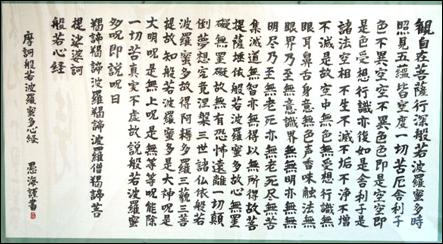 觀自在菩薩行深般若波羅蜜多時
照見五蘊皆空度一切苦厄舍利子
色不異空空不異色色即是空空即
是色受想行識亦復如是舍利子是
諸法空相不生不滅不垢不淨不增
不減是故空中無色無受想行識無
眼耳鼻舌身意無色声香味觸法無
眼界乃至無意識界無無明亦無無
明尽乃至無老死亦無老死尽無苦
集滅道無智亦無得以無所得故菩
提薩埵依般若波羅蜜多故心無罣
礙無罣礙故無有恐怖遠離一切顛
倒夢想究竟涅槃三世諸仏依般若
波羅蜜多故得阿耨多羅三藐三菩
提故知般若波羅蜜多是大神呪是
大明呪是無上呪是無等等呪能除
一切苦真実不虛故説般若波羅蜜
多呪即説呪曰
羯諦羯諦波羅羯諦波羅僧羯諦菩
提娑婆訶
般若心経
摩訶般若波羅蜜多心経
謹書